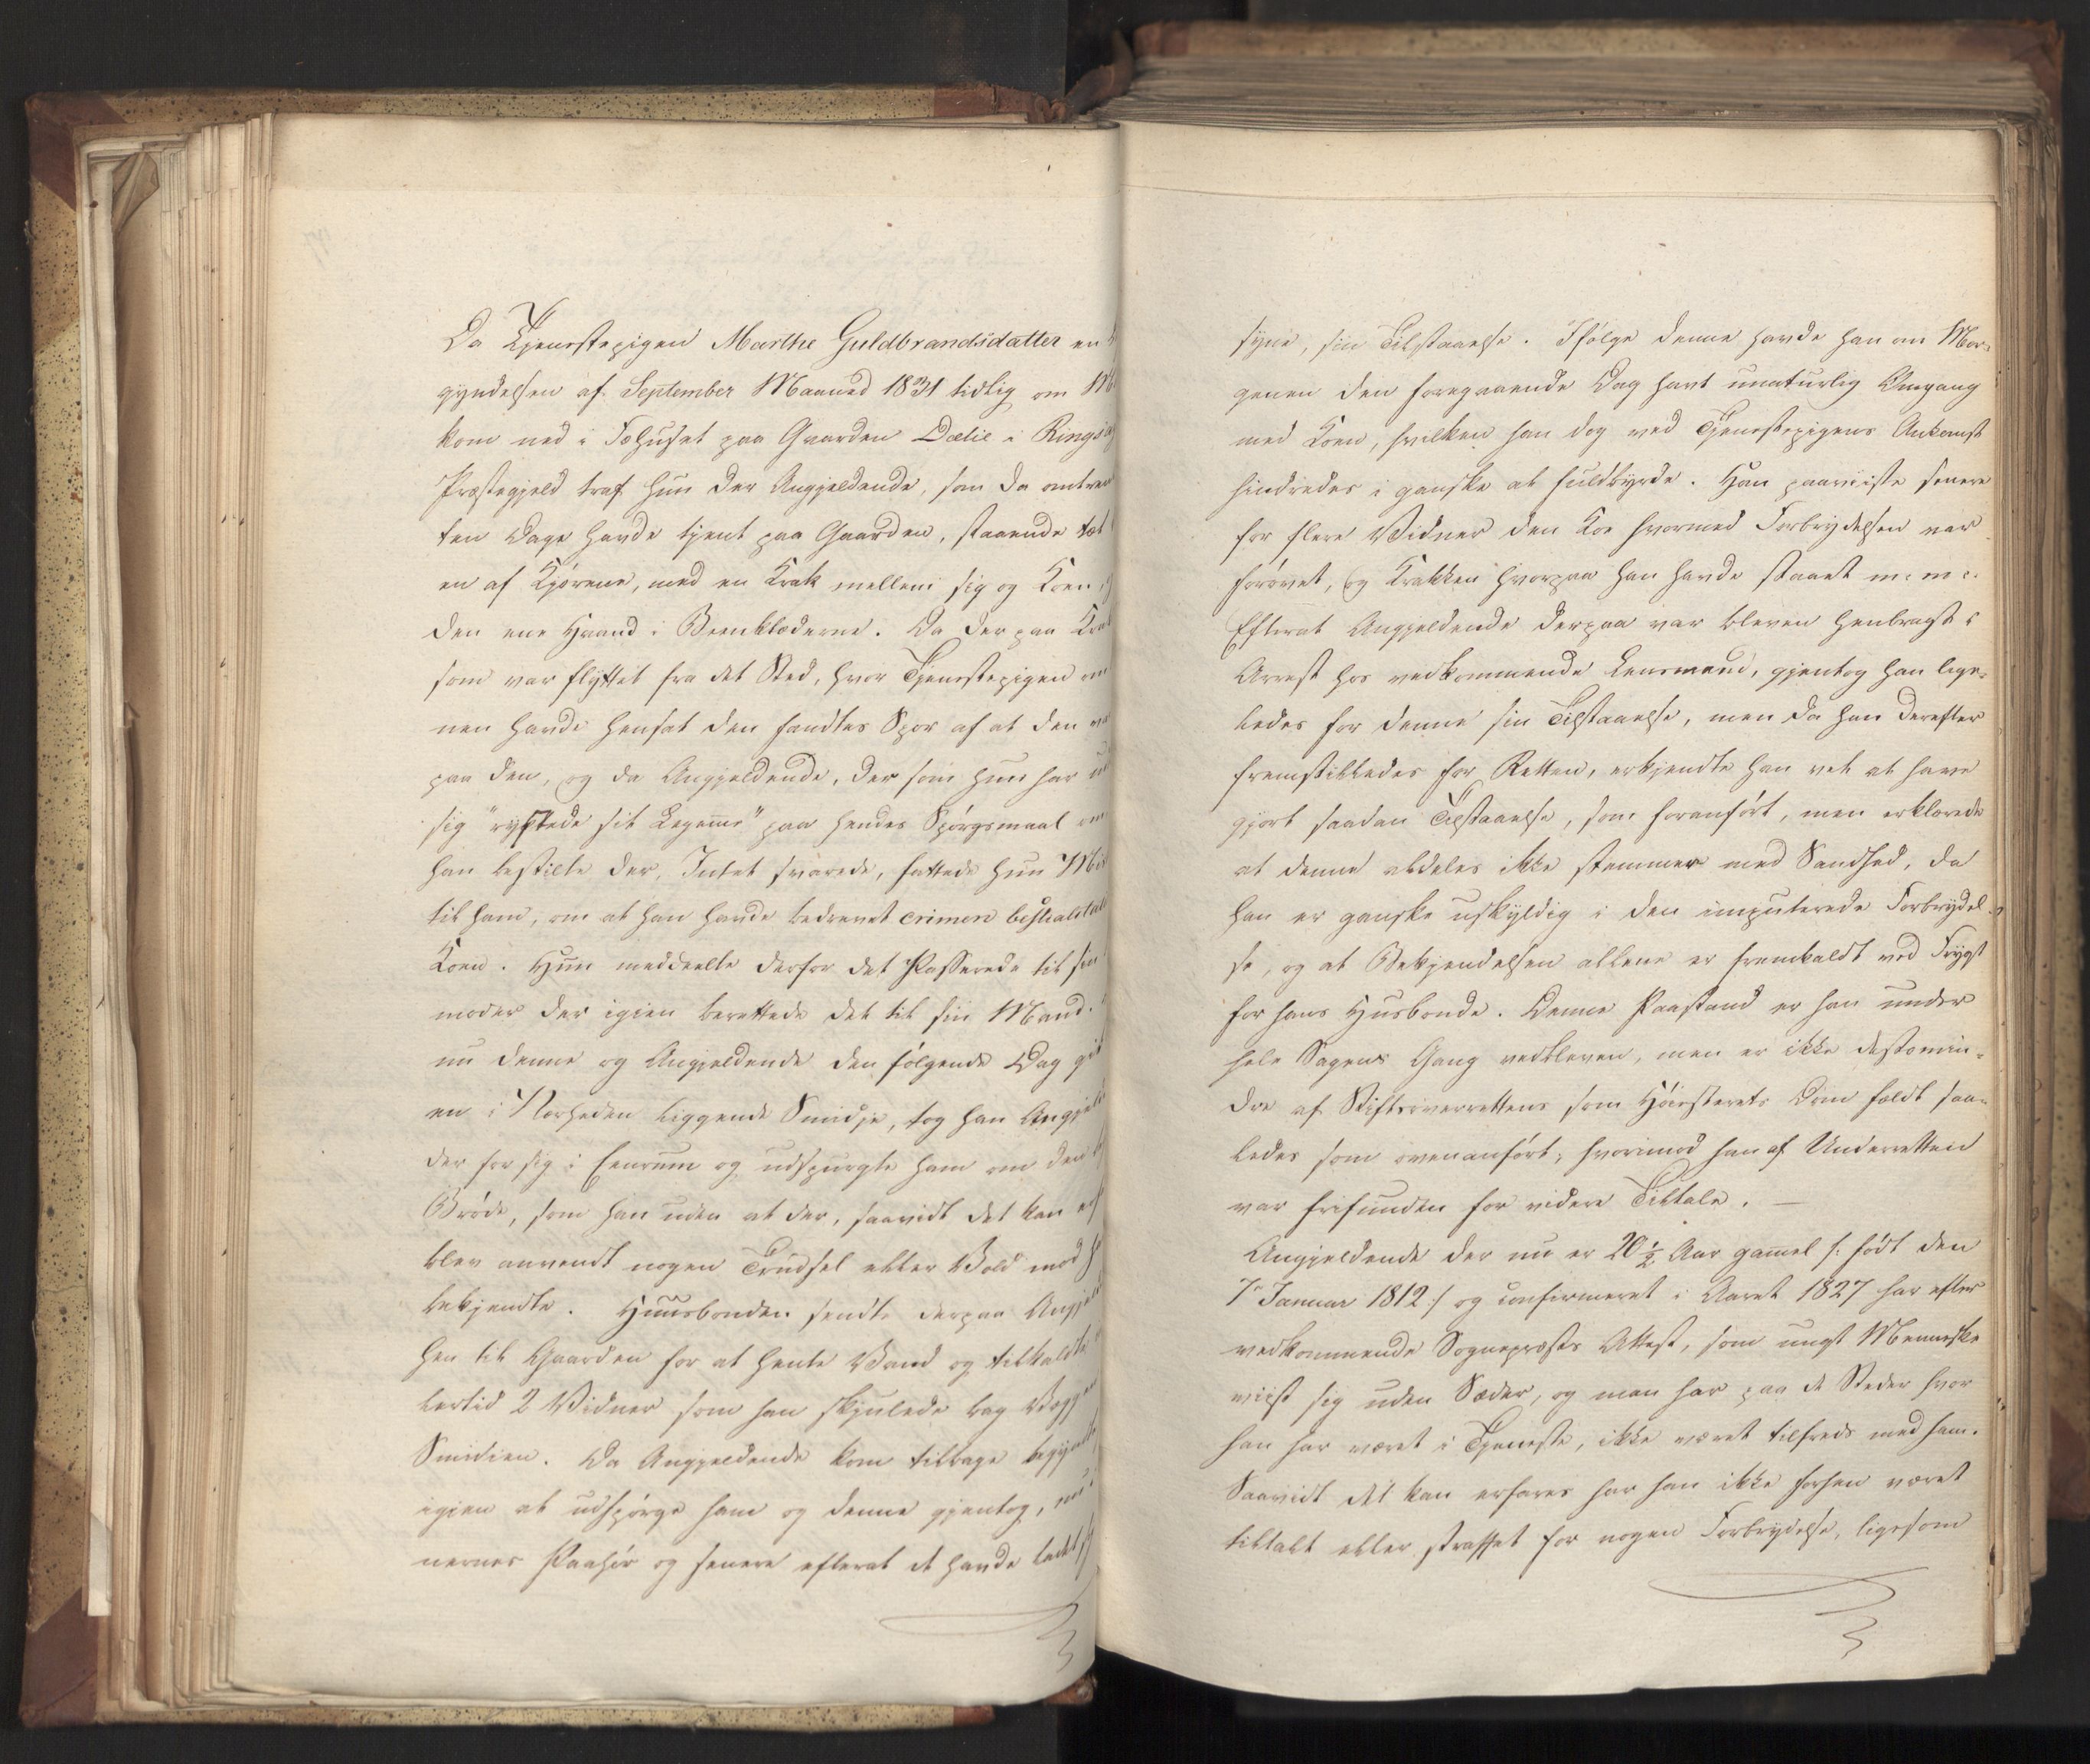 Da Tjenestepigen Marthe Guldbrandsdatter en
gyndelsen af September Maaned 1831 tidlig om
kom ned i Fæhuset paa Gaarden Dælie i Rings
Præstegjeld traf hun der Angjeldende, som da omtren
ten Dage havde tjent paa Gaarden, staaende tæt
en af Kjørene, med en Krak mellem sig og Koen,
den ene Haand i Beenklæderne. Da der paa
som var flyttet fra det Sted, hvor Tjenestepigen om
nen havde hensat den fandtes Spor af at den
paa den, og da Angjeldende, der som hun har
sig "rystede sit Legeme" paa hendes Spørgsmaal om
han bestilte der, Intet svarede, fattede hun
til ham, om at han havde bedrevet crimen bestialitat
Koen. Hun meddeelte derfor det Passerede til sin
moder der igien berettede det til sin Mand.
nu denne og Angjeldende den følgende Dag
en i Nærheden liggende Smidje, tog han Angjeld
der for sig i Eenrum og udspurgte ham om den
Brøde, som han uden at der, saavidt det kan
blev anvendt nogen Trudsel eller Vold mod
bekjendte. Huusbonden sendte derpaa Angjeld
hen til Gaarden for at hente Vand og tilkaldte
lertid 2 Vidner som han skjulede bag
Smidien. Da Angjeldende kom tilbage begyndte
igien at udspørge ham og denne gjentog,
nernes Paahør og senere efterat de havde ladet
syne, sin Tilstaaelse. Ifølge denne havde han om Mor-
genen den foregaaende Dag havt unaturlig Omgang
med Koen, hvilken han dog ved Tjenestepigens Ankomst
hindredes i ganske at fuldbyrde. Han paaviiste senere
for flere Vidner den Koe hvormed Forbrydelsen var
forøvet, og Krakken hvorpaa han havde staaet m: m:
Efterat Angjeldende derpaa var bleven henbragt i
Arrest hos vedkommende Lensmand, gjentog han lige-
ledes for denne sin Tilstaaelse, men da han derefter
fremstilledes for Retten, erkjendte han vel at have
gjort saadan Tilstaaelse, som foranført, men erklærede
at denne aldeles ikke stemmer med Sandhed, da
han er ganske uskyldig i den imputerede Forbrydel-
se, og at Bekjendelsen allene er fremkaldt ved Frygt
for hans Husbonde. Denne Paastand er han under
hele Sagens Gang vedbleven, men er ikke destomin-
dre af Stiftsoverrettens som Høiesterets Dom fældt saa-
ledes som ovenanført, hvorimod han af Underretten
var frifunden for videre Tiltale. —
Angjeldende der nu er 20 1/2 Aar gamel /: født den
7 Januar 1812 :/ og confirmeret i Aaret 1827 har efter
vedkommende Sognepræsts Attest, som ungt Menneske
viist sig uden Sæder, og man har paa de Steder hvor
han har været i Tjeneste, ikke været tilfreds med ham.
Saavidt det kan erfares har han ikke forhen været
tiltalt eller straffet for nogen Forbrydelse, ligesom